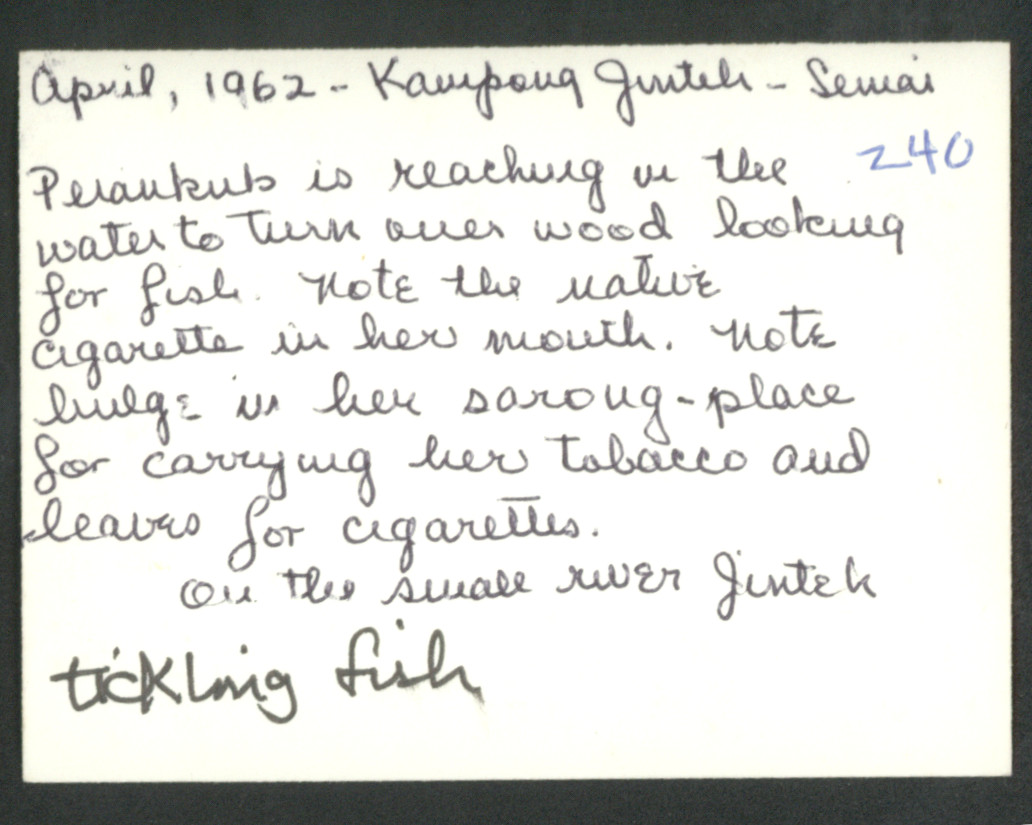 April, 1962 - Kampong Jinteh - Semai
240
Perankub is reaching in the
water to turn over wood looking
for fish. Note the native
cigarette in her mouth. Note
bulge in her sarong - place
for carrying her tobacco and
leaves for cigarettes.
On the small river Jinteh
tickling fish